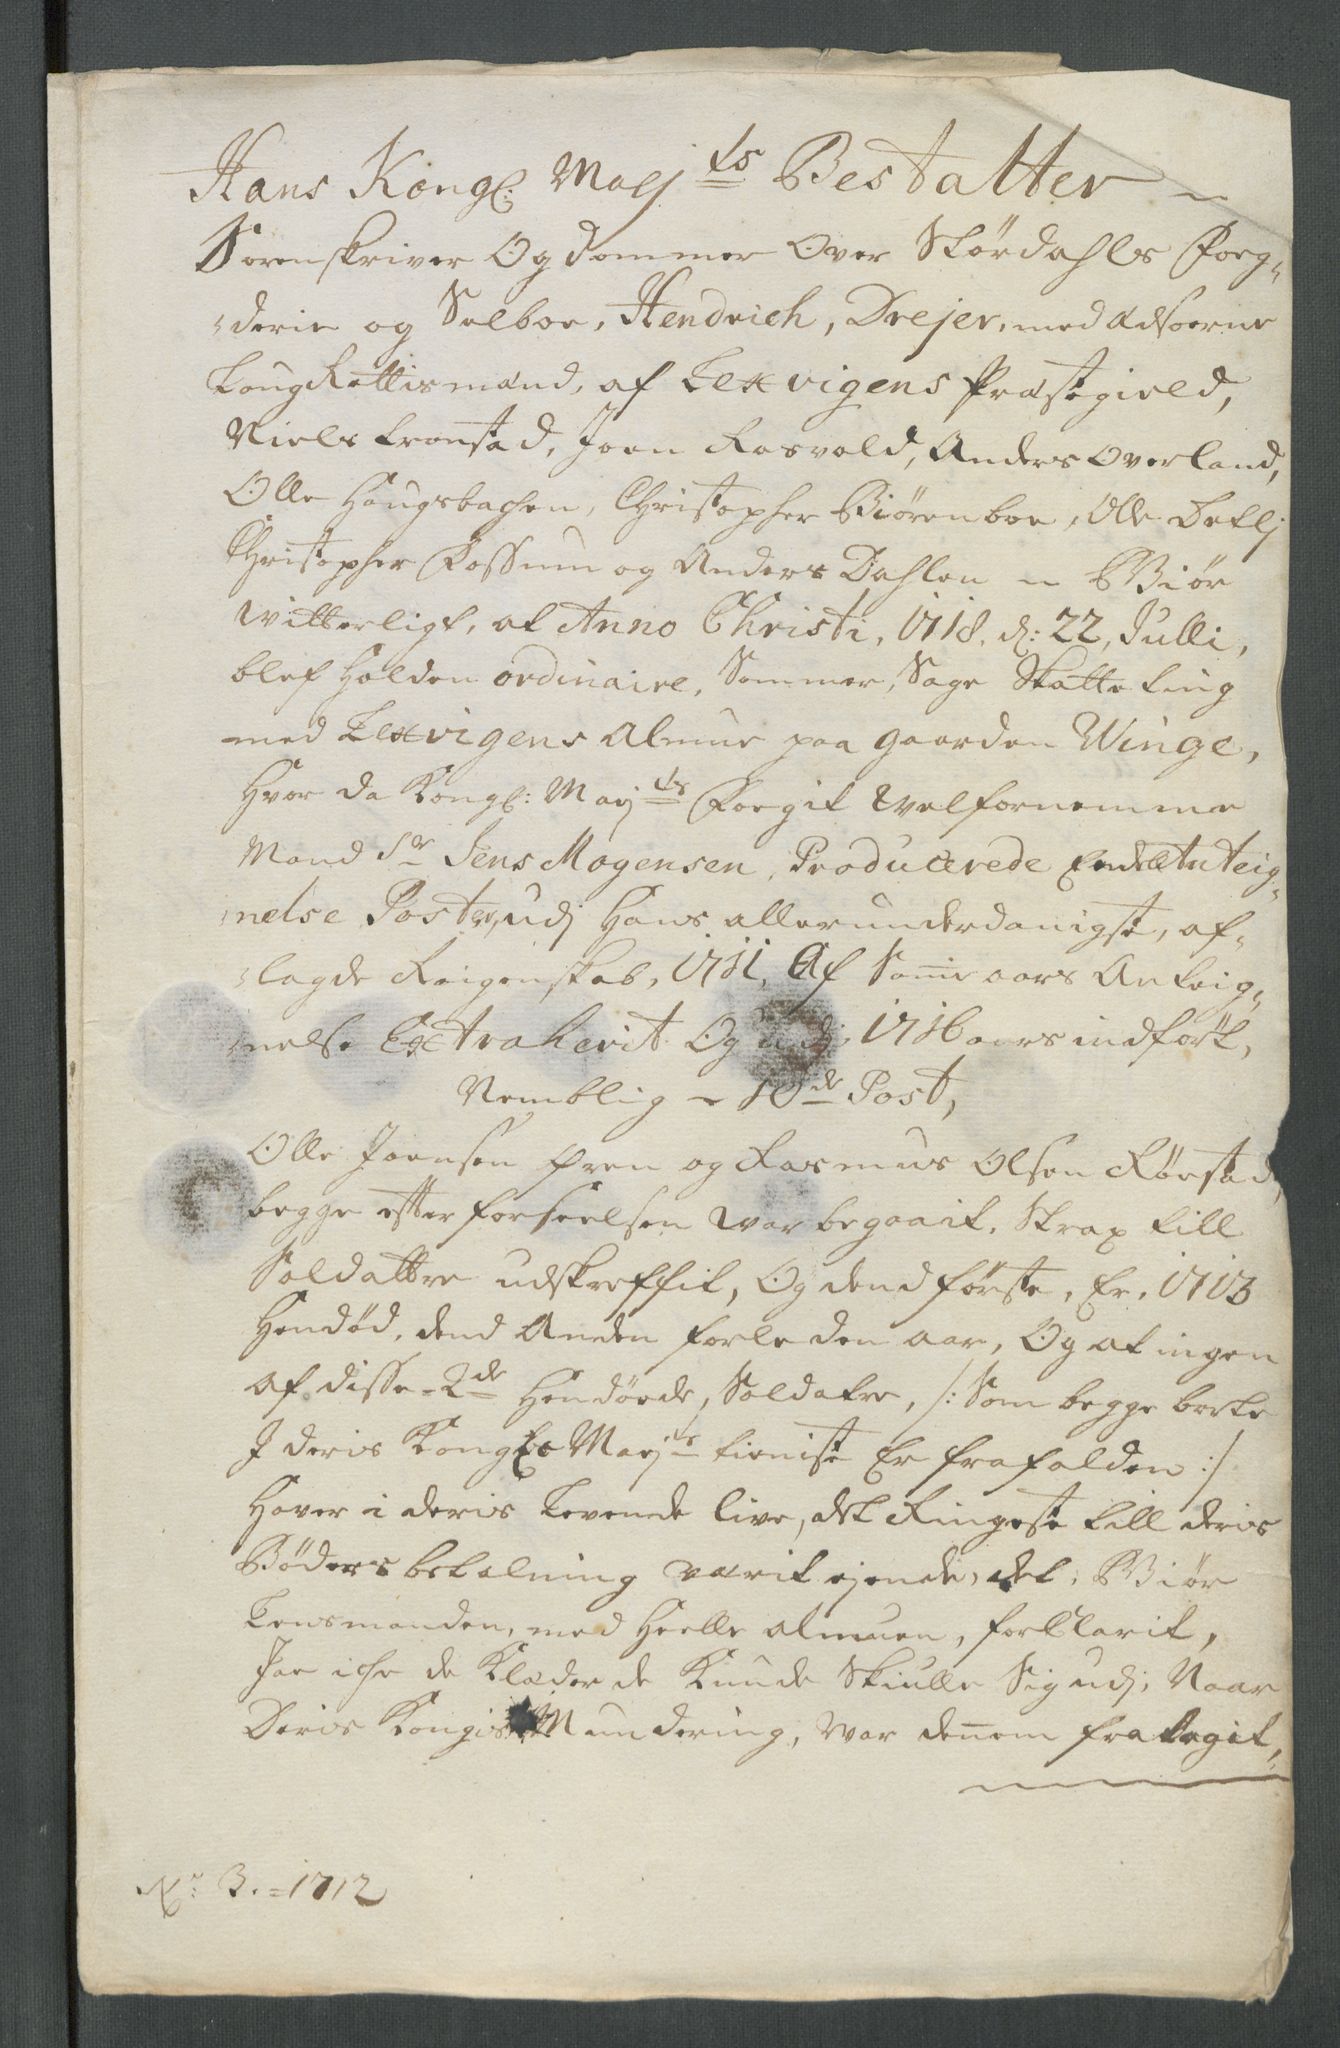 Hans Kongl: Maÿ ts Bestalter
Sorenskriver Og Dommer Over Stördahls Foeg-
derie og Selboe, Hendrich, Drejer, med Edsoerne
LaugRettismænd, af Lexvigens Præstegield,
Niels Kronstad, Joen Rosvold, Anders Overland,
Olle Haugsbachen, Christopher Biörenboe, Olle
Christopher Fossum og Anders Dahlen = Giör
Witterligt, at Anno Christi, 1718, d: 22, Julli,
blef Holden ordinaire, Sommer, Sage Skatte ting
med Lexvigens Almue paa gaarden Winge,
Hvor da Kongl: Maÿ ts Foegit Welfornemme
Mand Sr Jens Mogensen, Producerede Endell Anteig-
nelse Poster, udj Hans allerunderdanigste, af-
lagde Reigenskab, 1711, Af Samme aars Anteig-
nelse Extraherit Og udj 1716 aars indfört,
Nemblig - 10de Post,
Olle Joensen Fren og Rasmus Olsen Röestad,
begge efter forseelsen War begaait, Strax till
Soldatter udskreffit, Og dend förste, Er, 1713
Hendöd, dend Anden forleden aar, Og at ingen
af disse 2de Hendöede, Soldater, /: Som begge borte
J deris Kongl Maÿts tieniste Er frafalden :/
Haver i deris Levende live, det Ringeste till deris
Böders betalning Wærit ejende, det, Giör
Lensmanden, med Heelle Almuen, forklarit,
Jae iche de Klæder de Kunde Skiulle Sig udj, Naar
Deris Kongis Mundering, War dennem fratagit,
No 3. = 1712